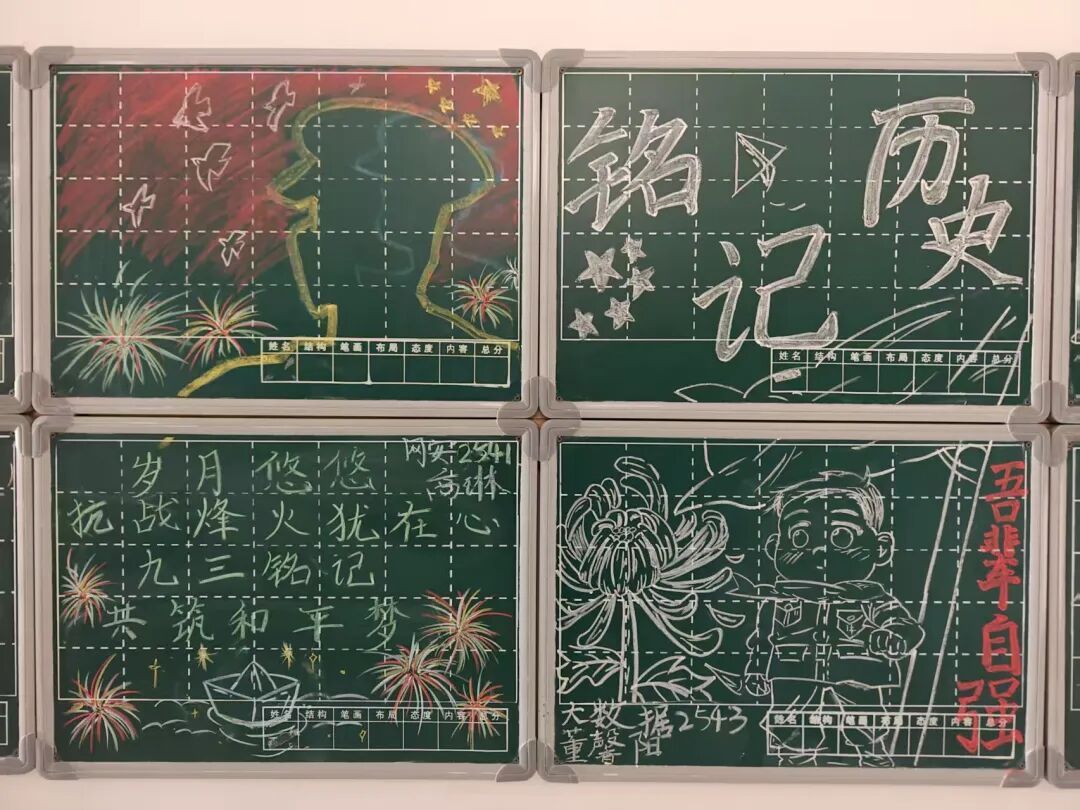 姓名 结构 笔画 布局 态度 内容 总分
铭记
历史
姓名 结构 笔画 布局 态度 内容 总分
网安2541
高琳
岁月悠悠
抗战烽火犹在心
九三铭记
共筑和平梦
姓名 结构 笔画 布局 态度 内容 总分
吾辈自强
大数据2543
董馨阳
姓名 结构 笔画 布局 态度 内容 总分